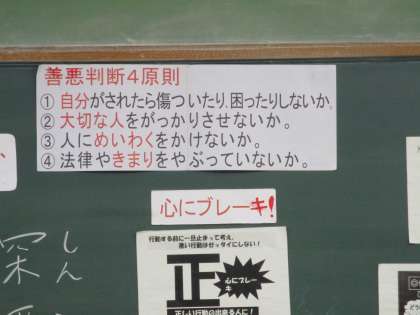 善悪判断4原則
① 自分がされたら傷ついたり、困ったりしないか。
② 大切な人をがっかりさせないか。
③ 人にめいわくをかけないか。
④ 法律やきまりをやぶっていないか。
心にブレーキ!
行動する前に一旦止まって考え、
悪い行動はゼッタイにしない!
正
心にブレーキ
正しい行動の出来る人に!
深
しん